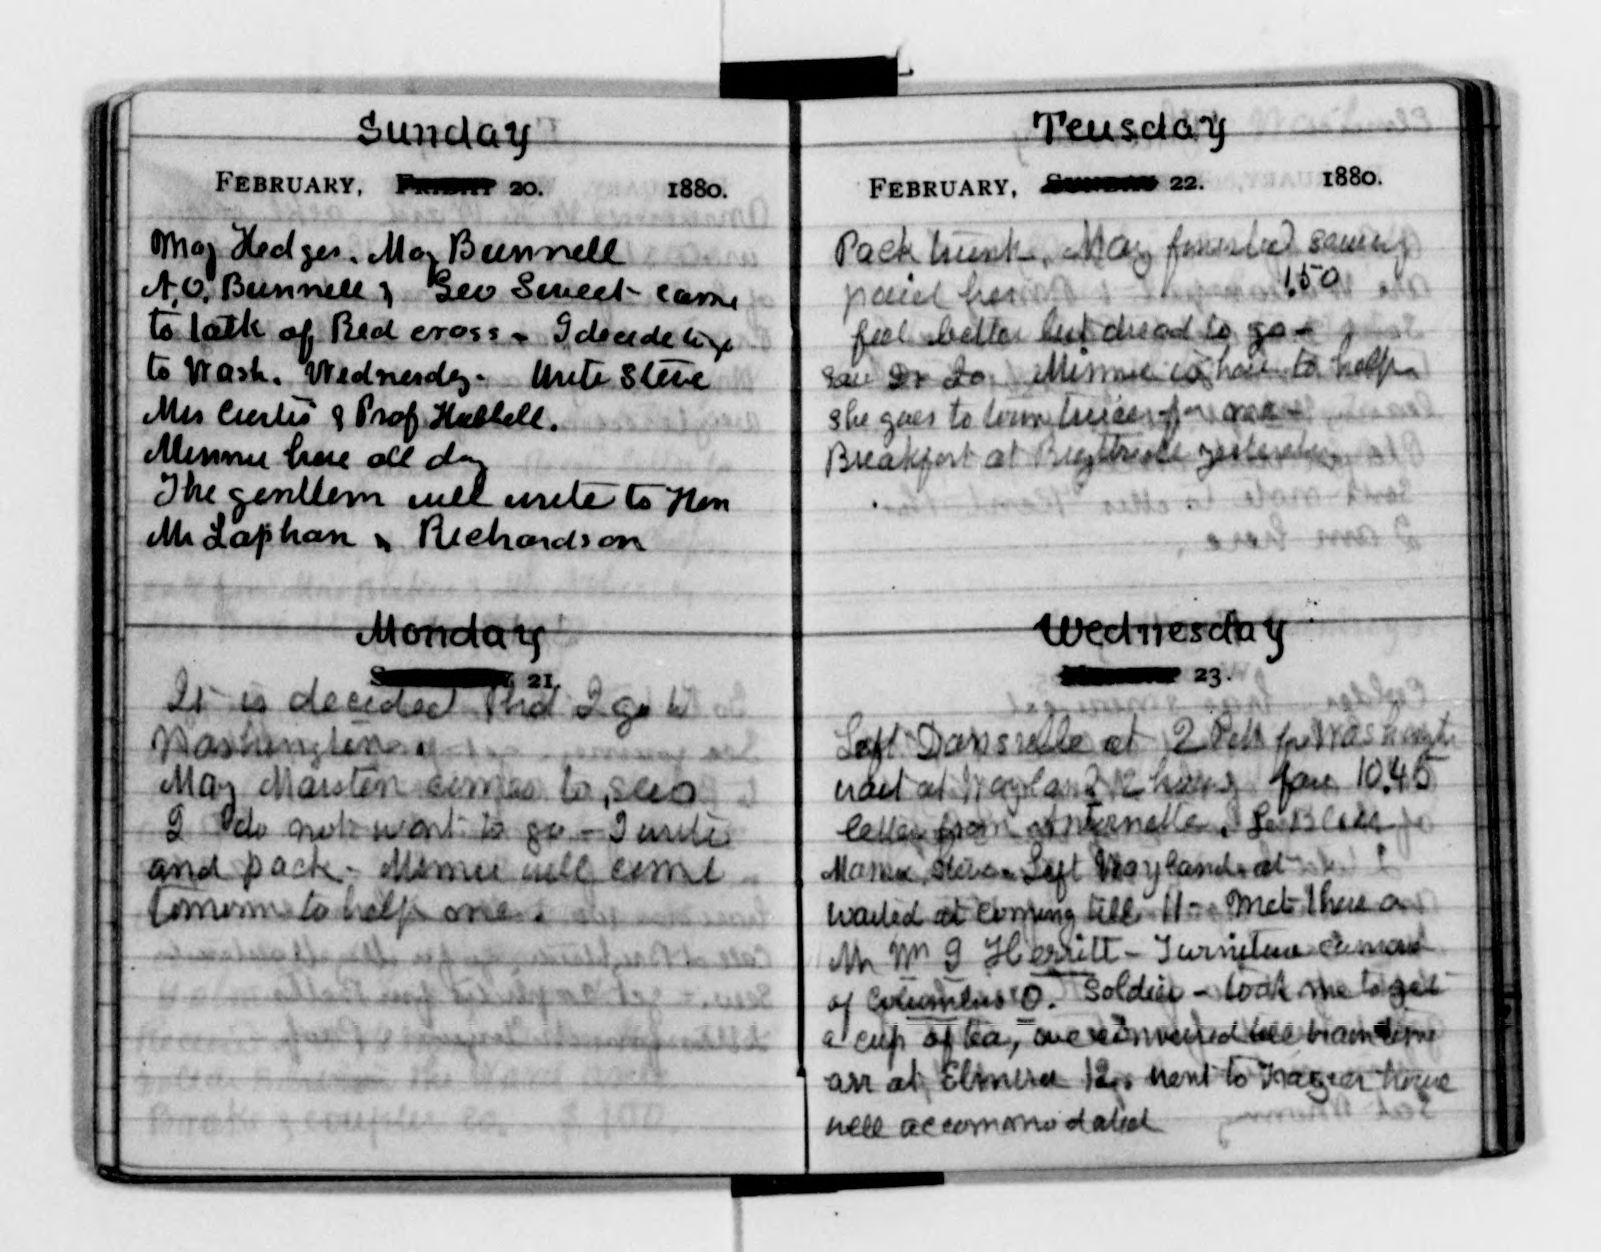 Sunday
FEBRUARY, 20. 1880.
Maj Hedges. Maj Bunnell
A.O. Bunnell & Geo Sweet came
to talk of Red cross - I decide to go
to Wash. Wednesday - Write Steve
Mrs Curtis & Prof Hubbell.
Minnie here all day
The gentlem will write to Hon
Mr Lapham & Richardson
Monday
21.
It is decided that I go to
Washington.
May Marsten comes to sew
I do not want to go - I write
and pack - Minnie will come
tomorrow to help me.
Teusday
FEBRUARY, SUNDAY 22. 1880.
Pack trunk. May finished sewing
paid her 1.50
feel better but dread to go -
saw Dr Jo Minnie is here to help
she goes to town twice for me -
Breakfast at yesterday
Wednesday
23.
Left Dansville at 2 PM for Washingt
wait at Wayland 2 hours fare 10.45
letter from Antoinette,
Mamie, Steve - Left Wayland at
waited at Corning till 11 - Met there a
Mr Wm G Herritt - Furniture
of Columbus O. Soldier - took me to get
a cup of tea, we conversed till train time
arr at Elmira 12. went to Frazer House
well accommodated